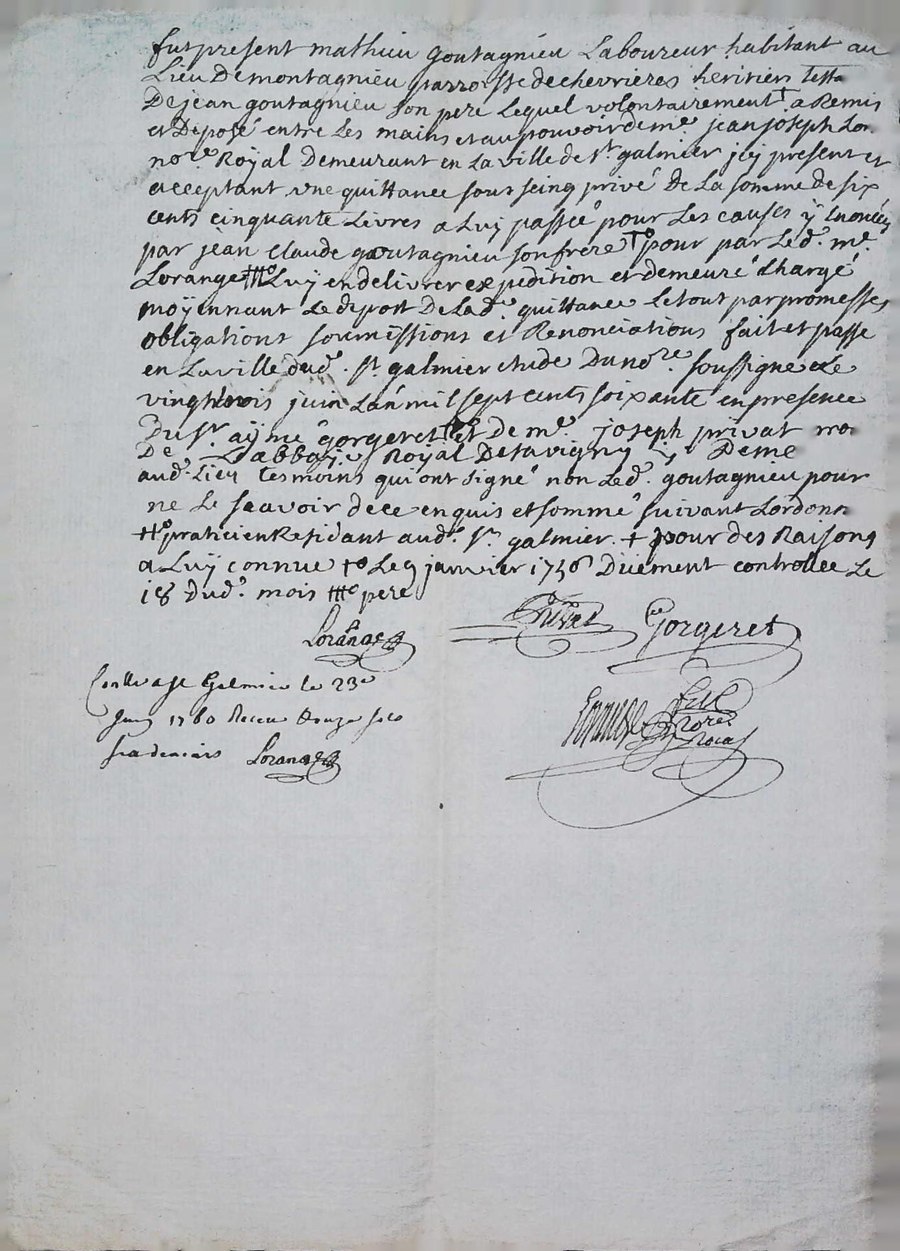 fut present mathieu goutagnieu Laboureur habitant au
Lieu De montagnieu parroisse de chevrieres heritier testa
De jean goutagnieu son pere Lequel volontairement † a Remis
et Deposé entre Les mains et au pouvoir de me. jean joseph Lor
nore. Royal Demeurant en La ville de St. galmier jcy present et
acceptant une quittance sous seing privé De La somme de six
cents cinquante Livres a Luy passée pour Les causes ÿ Enoncées
par jean claude goutagnieu son frere †o pour par Led. me.
Lorange ttto Luy en delivrer expedition et demeuré chargé
moÿennant Le deport De Lad. quittance Le tout par promesses
obligations soumissions et Renonciations fait et passe
en La ville dud. St. galmier etude Du nore. soussigné Le
vingt trois juin Lan mil sept cents soixante en presence
Du Sr. aÿmé gorgeret tto et De me. joseph privat
De Labbaÿe Royal De savigny
aud. Lieu tesmoins qui ont signé non Led. goutagnieu pour
ne Le scavoir de ce enquis et sommé suivant Lordonn
tto praticien Residant aud. St. galmier. † pour des Raisons
a Luy connue †o Le 9 janvier 1756 Duement controllée Le
18 Dud. mois ttto pere
Lorange
Privat Gorgeret
Conlle a St Galmier le 23e
Juin 1760 Receu Douze sols
six deniers Lorange